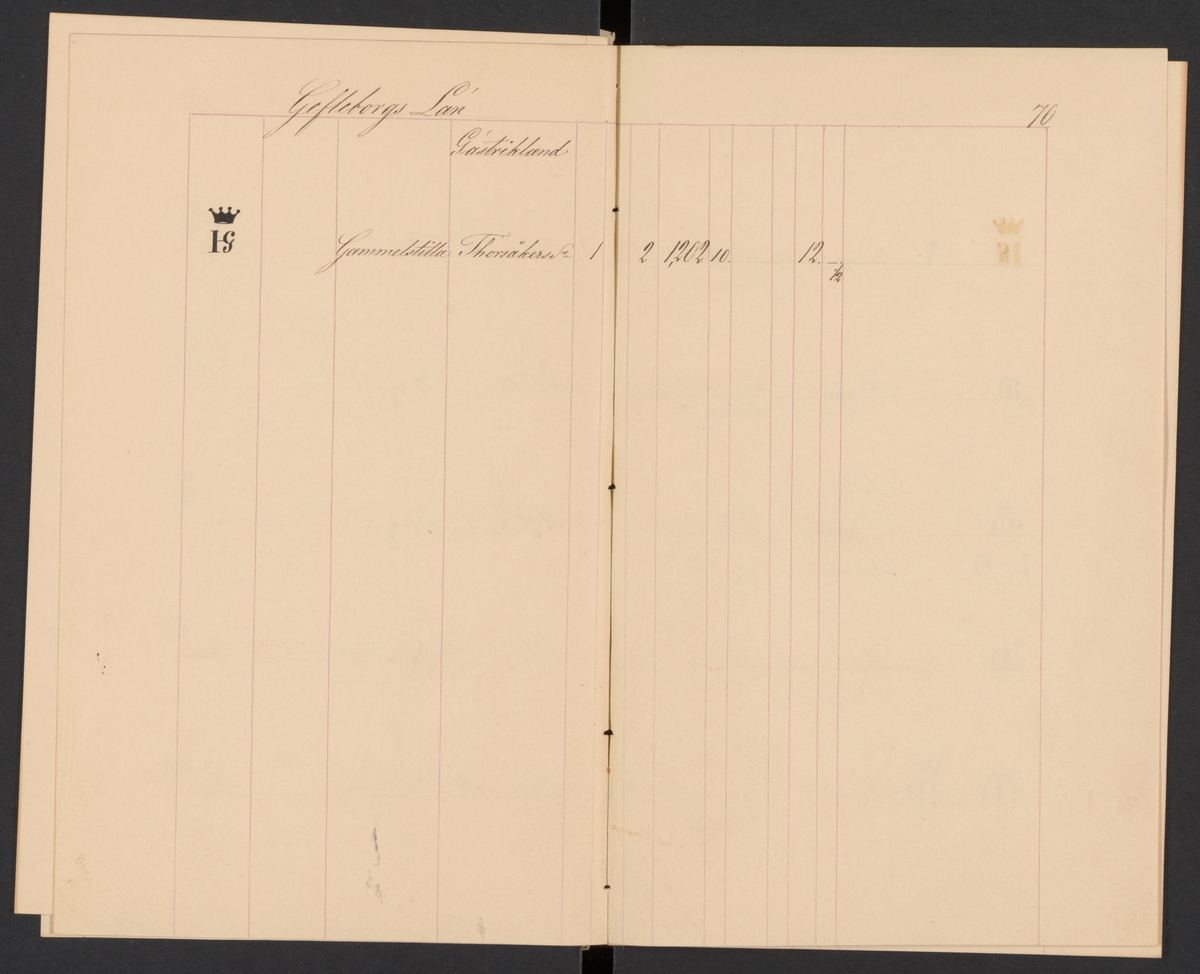 Gefleborgs Län
70
Gästrikland
Gammelstilla Thorsåkers Sn 1 2 1,202 10. 12. 1/2